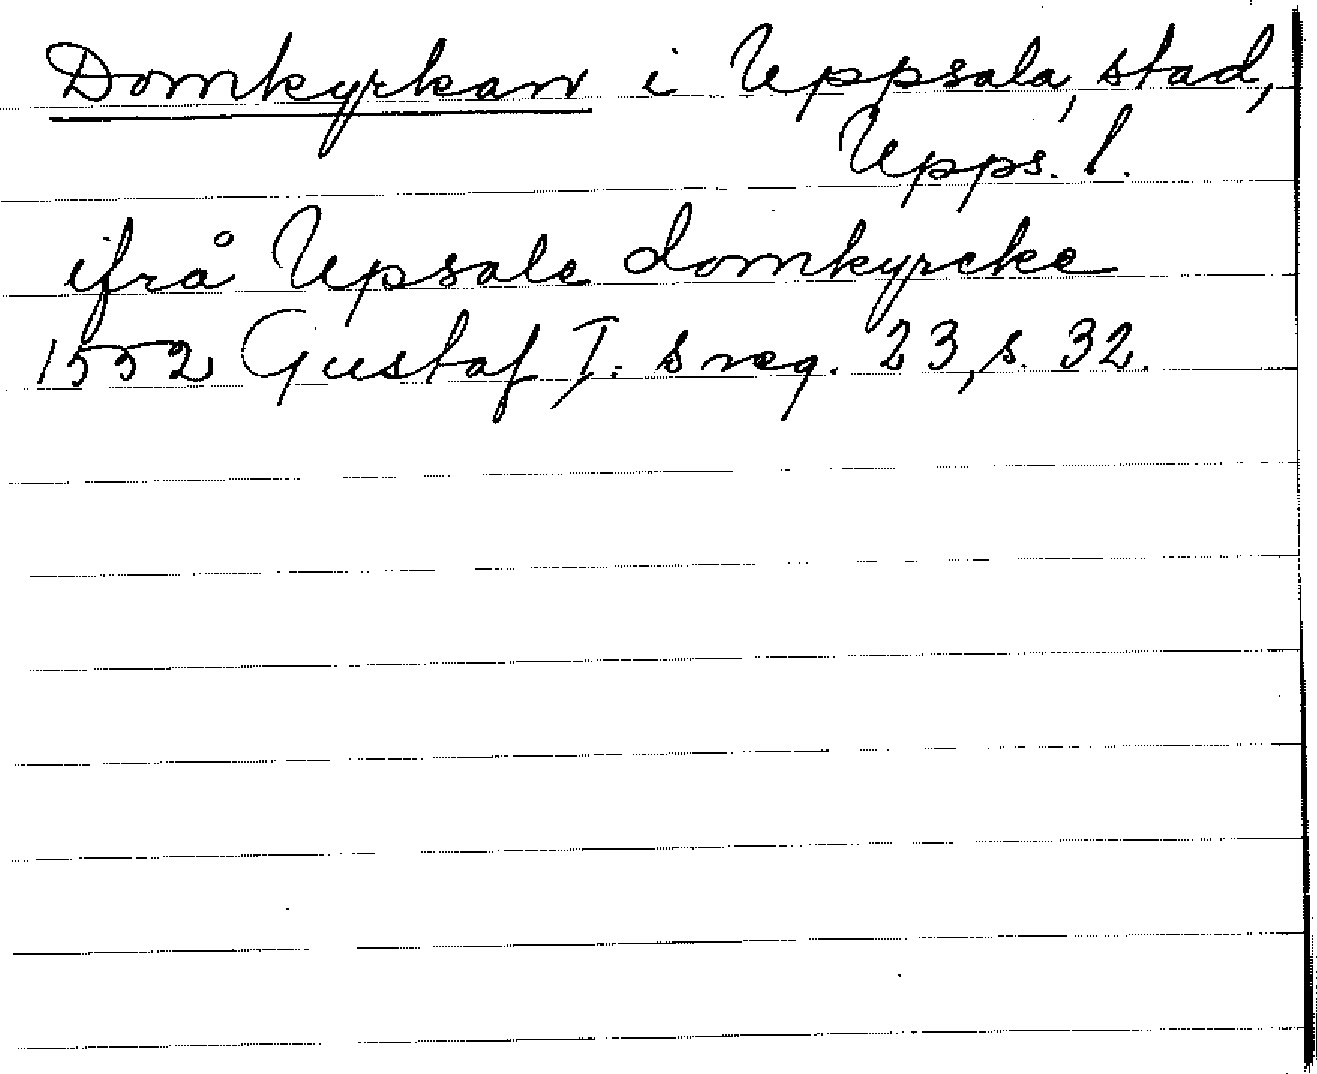 Domkyrkan i Uppsala, stad,
Upps. l.
ifrå Upsale domkyrcke
1552 Gustaf I: s reg. 23, s. 32.